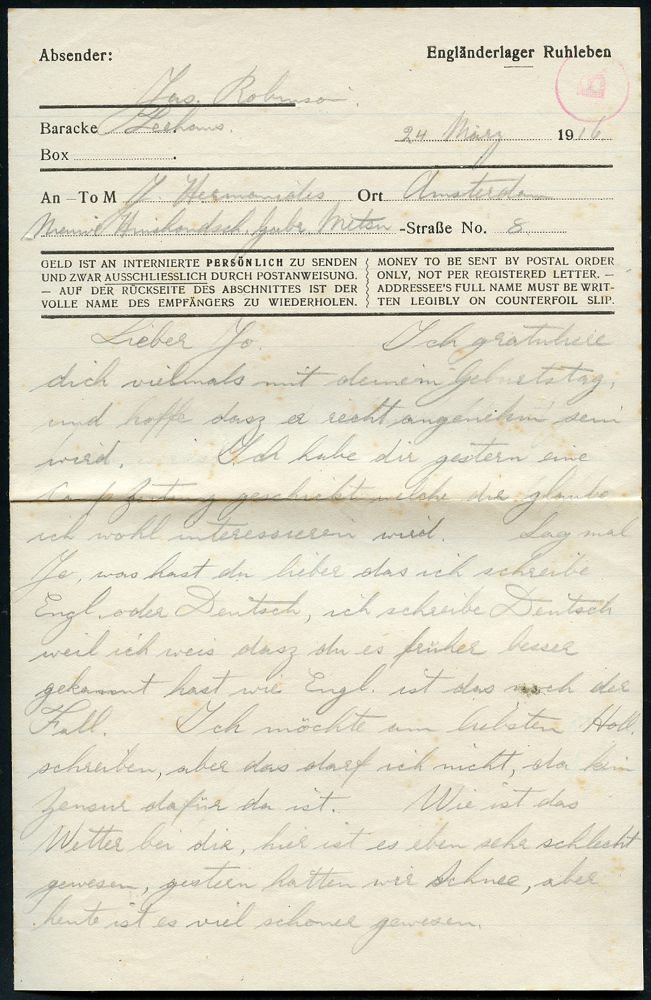 Absender:
Engländerlager Ruhleben
Jas. Robinson.
Baracke Teehaus.
24 März 1916
Box
An – To M J. Hermanides Ort Amsterdam
Nieuwe -Straße No. 8
GELD IST AN INTERNIERTE PERSÖNLICH ZU SENDEN
UND ZWAR AUSSCHLIESSLICH DURCH POSTANWEISUNG.
— AUF DER RÜCKSEITE DES ABSCHNITTES IST DER
VOLLE NAME DES EMPFÄNGERS ZU WIEDERHOLEN.
MONEY TO BE SENT BY POSTAL ORDER
ONLY, NOT PER REGISTERED LETTER. —
ADDRESSEE'S FULL NAME MUST BE WRIT-
TEN LEGIBLY ON COUNTERFOIL SLIP.
Lieber Jo. Ich gratuliere
dich vielmals mit deinem Geburtstag,
und hoffe dasz er recht angenehm sein
wird. Ich habe dir gestern eine
Campzeitung geschickt welche dir glaube
ich wohl interessieren wird. Sag mal
Jo, was hast du lieber das ich schreibe
Engl. oder Deutsch, ich schreibe Deutsch
weil ich weis dasz du es früher besser
gekannt hast wie Engl. ist das noch der
Fall. Ich möchte am liebsten Holl.
schreiben, aber das darf ich nicht, da kein
Zensur dafür da ist. Wie ist das
Wetter bei dir, hier ist es eben sehr schlecht
gewesen, gestern hatten wir Schnee, aber
heute ist es viel schöner gewesen.